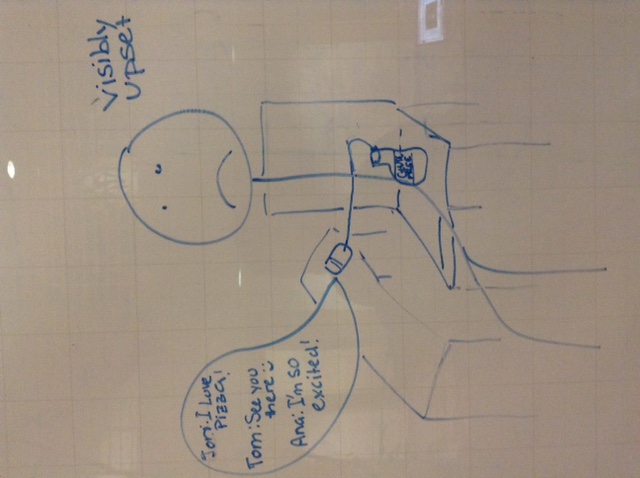 visibly
upset
Jorj: I Love
Pizza!
Tom: See you
there
Ana: I'm so
excited!